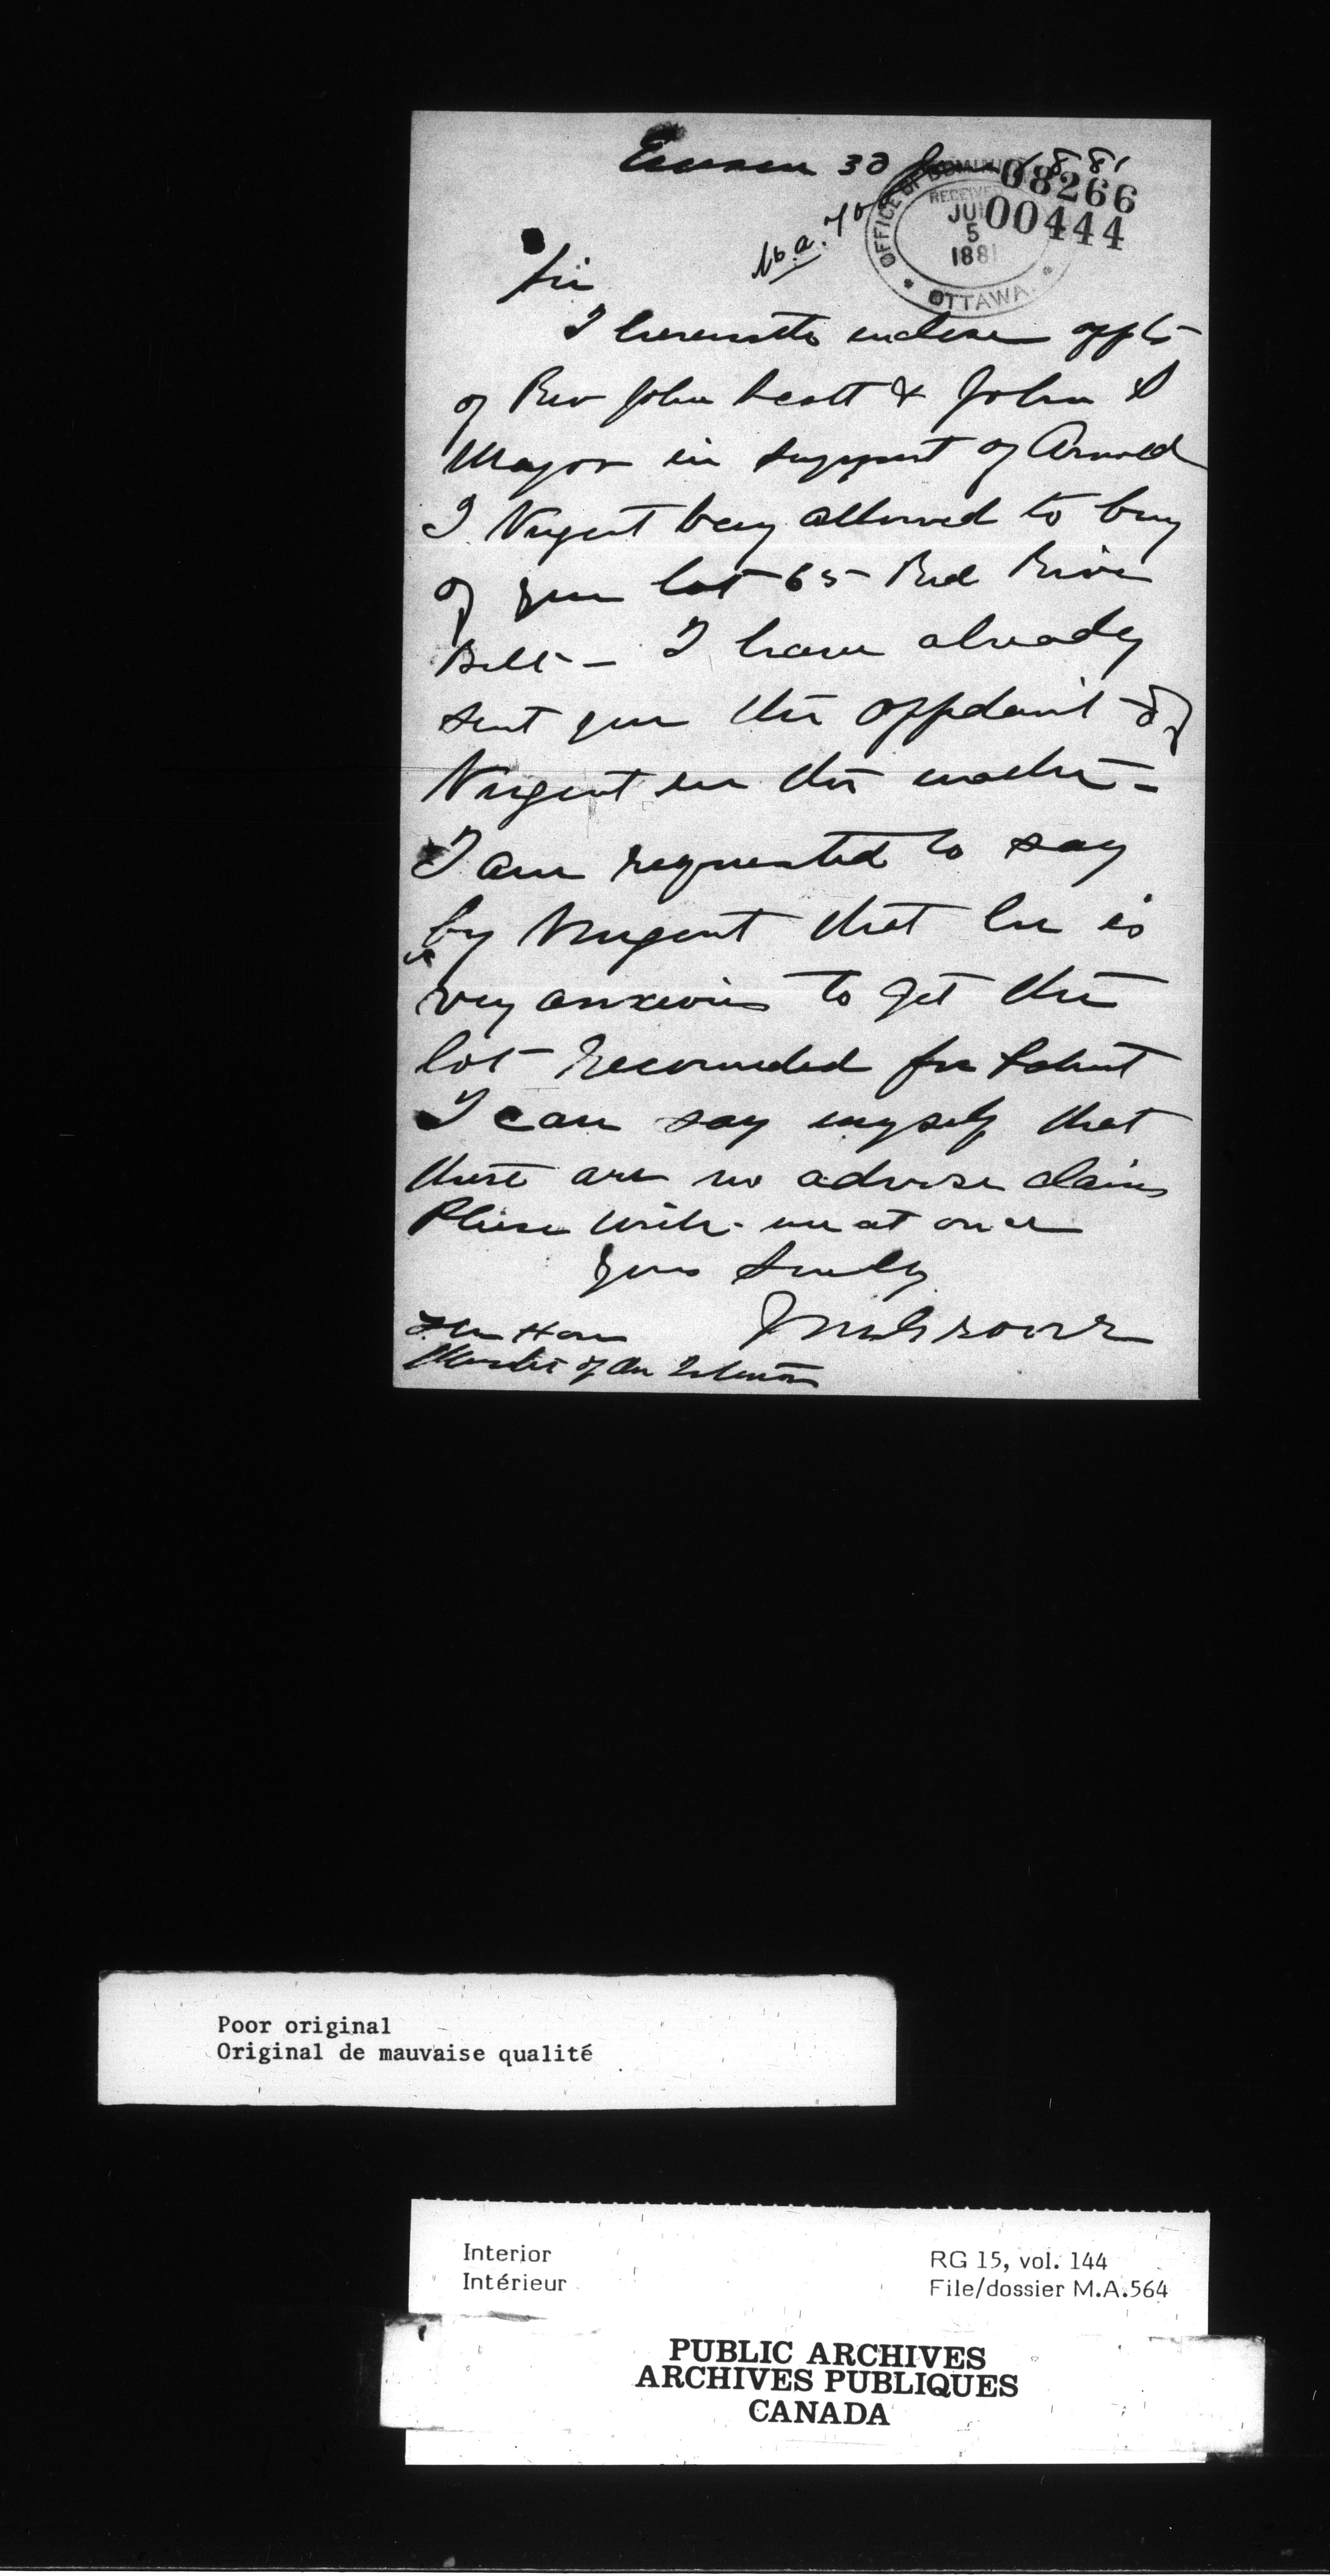 Emerson 30 June 1881
08266
00444
OFFICE OF DOMINION
RECEIVED
JUL
5
1881
OTTAWA
M.A.
Sir
I herewith enclose affts
of Rev John Scott & John S
Major in support of Arnold
I. Nugent being allowed to buy
of you lot 65 Red River
Belt – I have already
sent you the affidavit of
Nugent in this matter –
I am requested to say
by Nugent that he is
very anxious to get this
lot recommended for Patent
I can say myself that
there are no adverse claims
Please write me at once
Yours Truly
The Hon
Minister of the Interior
Poor original
Original de mauvaise qualité
Interior
Intérieur
RG 15, vol. 144
File/dossier M.A.564
PUBLIC ARCHIVES
ARCHIVES PUBLIQUES
CANADA